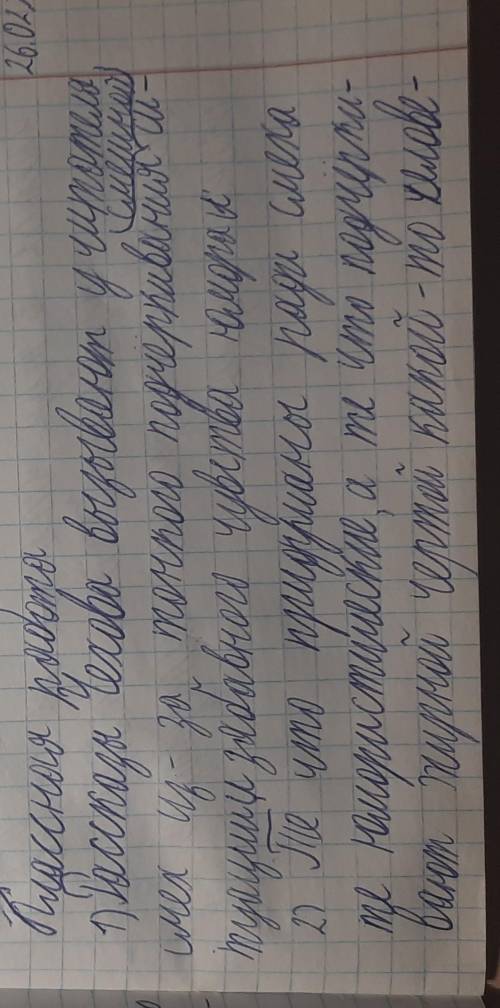 26.02
Классная работа
1) Рассказы Чехова вызывают у читателя
смех из-за тонкого подчеркивания (смешной) си-
туации забавного чувства юмора
2) Те что придуманы ради смеха
те юмористические, а те что подчерки-
вают жирной чертой какой-то челове-